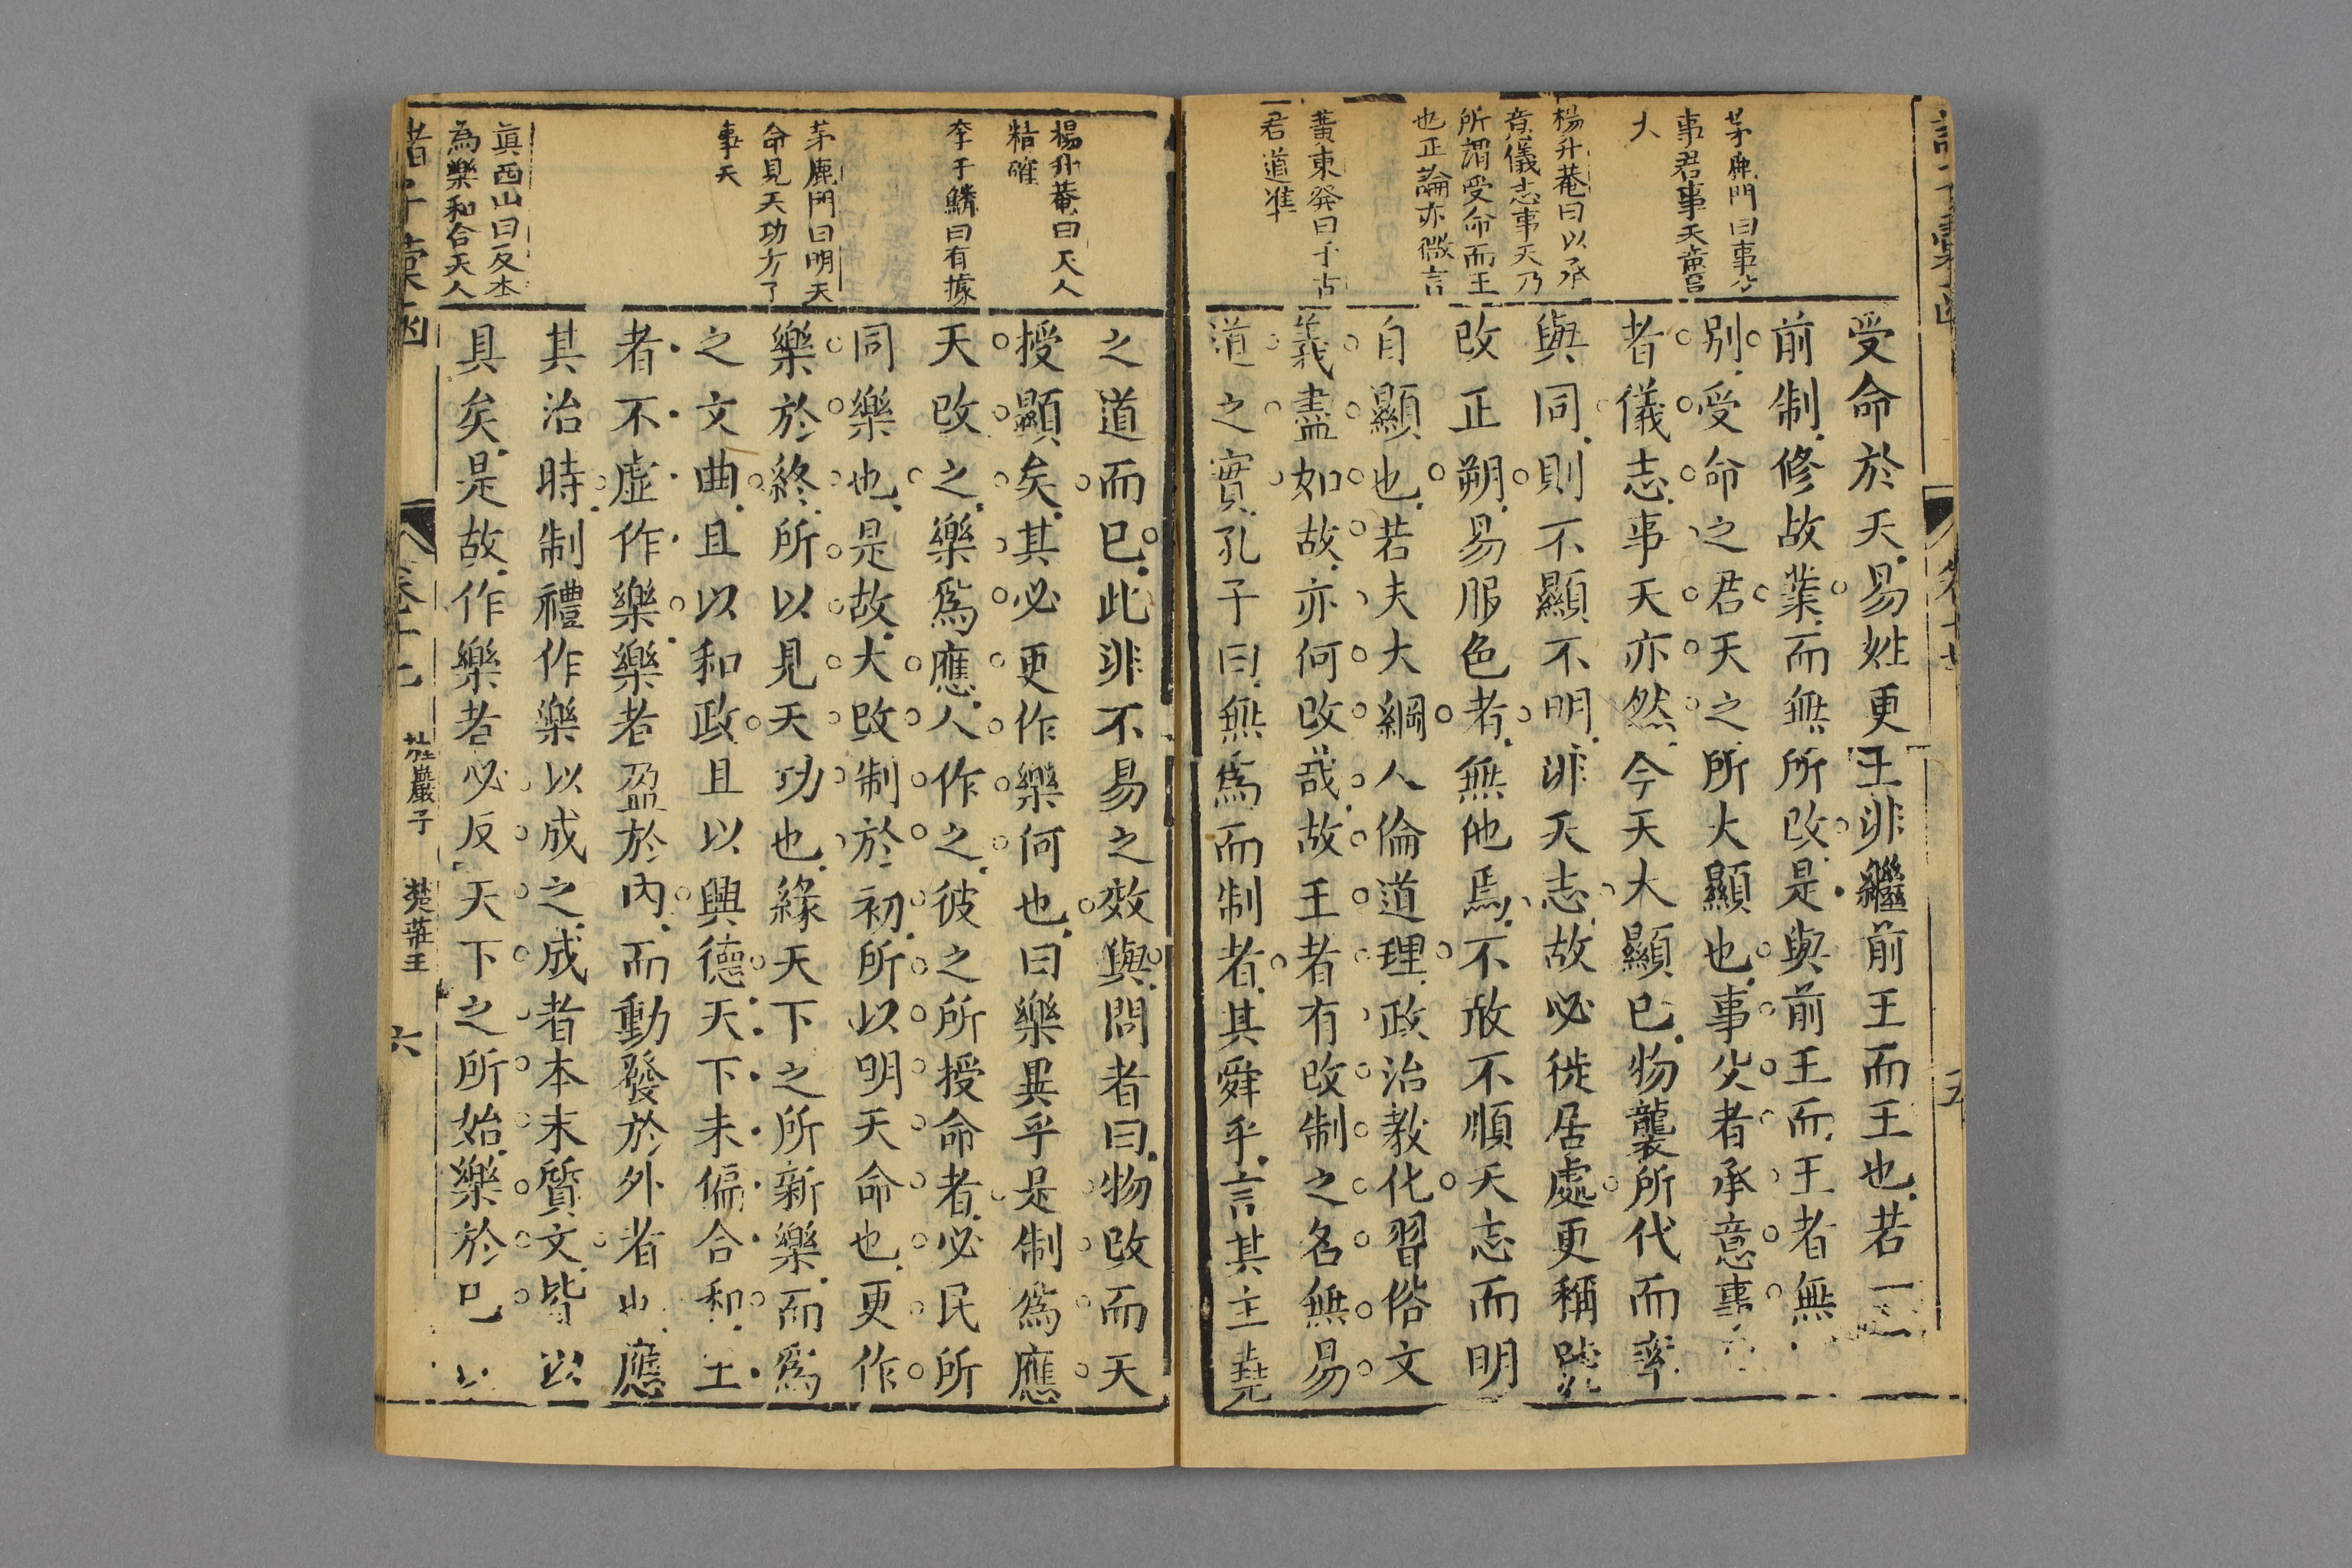 茅鹿門曰事父
事君事天當
大
楊升菴曰以承
意儀志事天乃
所謂受命而王
也正論亦微言
黃東發曰千古
君道準
受命於天易姓更王非繼前王而王也若一
前制修故業而無所改是與前王而王者無
別受命之君天之所大顯也事父者承意事
者儀志事天亦然今天大顯已物襲所代而率
與同則不顯不明非天志故必徙居處更稱號
改正朔易服色者無他焉不敢不順天志而明
自顯也若夫大綱人倫道理政治教化習俗文
義盡如故亦何改哉故王者有改制之名無易
道之實孔子曰無爲而制者其舜乎言其主堯
楊升菴曰天人
粘確
李于鱗曰有據
茅鹿門曰明天
命見天功方了
事天
眞西山曰反本
為樂和合天人
之道而已此非不易之效與問者曰物改而天
授顯矣其必更作樂何也曰樂異乎是制爲應
天改之樂爲應人作之彼之所授命者必民所
同樂也是故大改制於初所以明天命也更作
樂於終所以見天功也緣天下之所新樂而爲
之文曲且以和政且以興德天下未偏合和王
者不虛作樂樂者盈於內而動發於外者也應
其治時制禮作樂以成之成者本末質文皆以
具矣是故作樂者必反天下之所始樂於已以
諸子彙函
卷十七
桂巖子
楚莊王
六